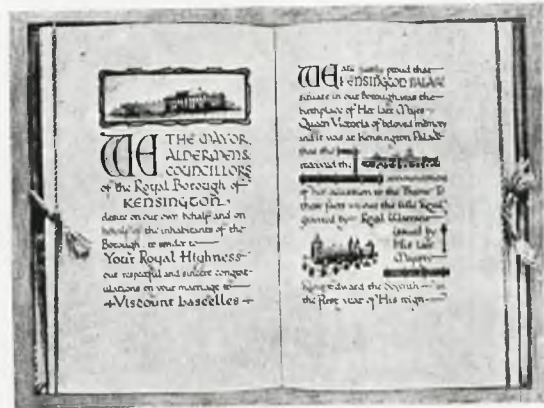 WE THE MAYOR,
ALDERMEN &
COUNCILLORS
of the Royal Borough of
KENSINGTON,
desire on our own behalf and on
behalf of the inhabitants of the
Borough, to tender to
Your Royal Highness
our respectful and sincere congrat-
ulations on your marriage to
Viscount Lascelles
WE are proud that
KENSINGTON PALACE
situate in our Borough was the
birthplace of Her late Majes-
Queen Victoria of beloved memory
and it was at Kensington Palace
that the
received the
of her accession to the Throne To
these facts we owe the title Royal
granted by Royal Warrant
issued by
His late
Majesty
King Edward the Seventh
in the first year of His reign